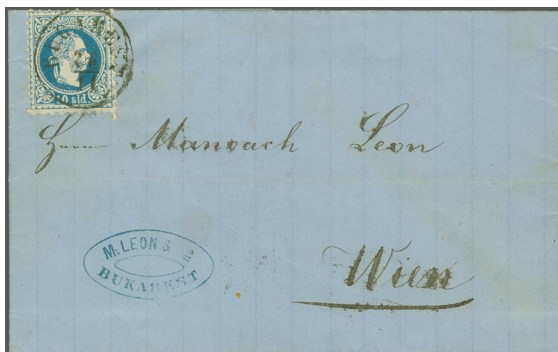 10 sld.
Herrn Manoach Leon
M. LEON &
BUKAREST
Wien